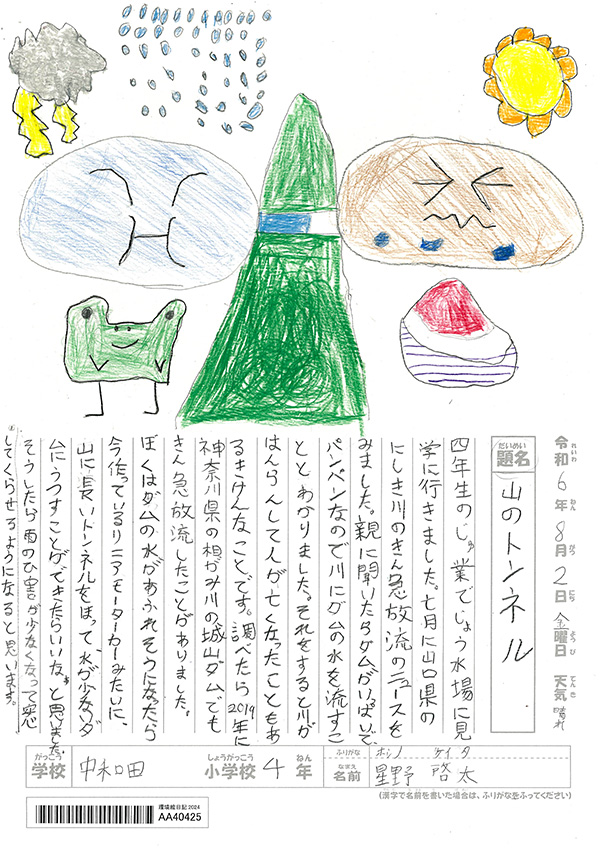 令和6年8月2日金曜日 天気 晴れ
れいわ ねん がつ にち ようび てんき
だいめい
題名
山のトンネル
四年生のじゅ業でじょう水場に見
学に行きました。七月に山口県の
にしき川のきん急放流のニュースを
みました。親に聞いたらダムがいっぱいで、
パンパンなので川にダムの水を流すこ
ととわかりました。それをすると川が
はんらんして人が亡くなったこともあ
るきけんなことです。調べたら2019年に
神奈川県の相がみ川の城山ダムでも
きん急放流したことがありました。
ぼくはダムの水があふれそうになったら
今作っているリニアモーターカーみたいに、
山に長いトンネルをほって、水が少ないダ
ムにうつすことができたらいいなぁと思いました。
そうしたら雨のひ害が少なくなって安心
してくらせるようになると思います。
がっこう しょうがっこう ねん
学校 中和田 小学校 4年
ふりがな ホシノ ケイタ
なまえ
名前 星野 啓太
(漢字で名前を書いた場合は、ふりがなをふってください)
環境絵日記2024
AA40425